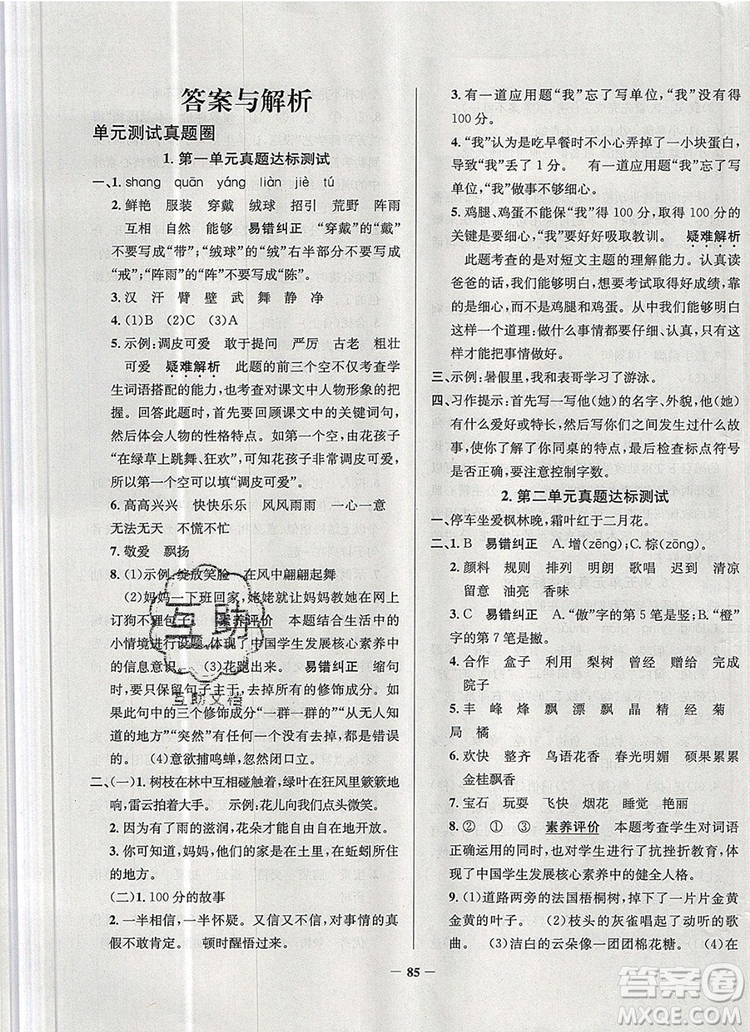 答案与解析
单元测试真题圈
1. 第一单元真题达标测试
一、1. shang quān yáng liàn jiè tú
2. 鲜艳 服装 穿戴 绒球 招引 荒野 阵雨
互相 自然 能够 易错纠正 “穿戴”的“戴”
不要写成“带”；“绒球”的“绒”右半部分不要写成
“戒”；“阵雨”的“阵”不要写成“陈”。
3. 汉 汗 臂 壁 武 舞 静 净
4. (1)B (2)A (3)A
5. 示例：调皮可爱 敢于提问 严厉 古老 粗壮
可爱 疑难解析 此题的前三个空不仅考查学
生词语搭配的能力，也考查对课文中人物形象的把
握。回答此题时，首先要回顾课文中的关键词句，
然后体会人物的性格特点。如第一个空，由花孩子
“在绿草上跳舞、狂欢”，可知花孩子们非常活泼可
爱，因此第一个空可以填“调皮可爱”。
6. 高高兴兴 快快乐乐 风风雨雨 一心一意
无法无天 不慌不忙
7. 敬爱 飘扬
8. (1)示例：绽放笑脸 在风中翩翩起舞
(2)妈妈一下班回家，姥姥就让妈妈教她在网上
订狗不理包子。 素养评价 本题结合生活中的
小情境进行设题，体现了中国学生发展核心素养中的
信息意识。 (3)花跑出来。 易错纠正 缩句
时，要把保留句子主干，去掉所有的修饰成分，
此句中的三个修饰成分“一群一群的”“从无人知
道的地方”“突然”都要去掉，否则就是错误
的。 (4)意欲捕鸣蝉，忽然闭口立。
二、(一)1. 树枝在林中互相碰触着，绿叶在狂风里簌簌地
响，雷云拍着大手。 示例：花儿向我们点头微笑。
2. 因为有了雨的滋润，花朵才能自由自在地开放。
3. 你可知道，妈妈，他们的家是在土里，在蚯蚓所住
的地方。
(二)1. 100 分的故事
2. 一半相信，一半怀疑。又信又不信，对事情的真
假不敢肯定。 顿时醒悟过来。
3. 有一道应用题“我”忘了写单位，“我”没有得
100 分。
4. “我”认为是吃早餐时不小心弄掉了一小块蛋白，
导致“我”丢了 1 分。 因为有一道题“我”忘了写
单位。 “我”做事不够细心。
5. 鸡腿、鸡蛋不能使“我”得 100 分，得 100 分的
关键是要细心，所以要好好吸取教训。 疑难解析
此题考查的是对短文主题的理解能力。认真读
爸爸的话，我们能够明白，要想考试取得好成绩，靠
的是细心，而不是鸡腿和鸡蛋。所以我们能够明白
这样一个道理：做什么事情都要仔细认真，这样才
能把事情做好。
三、示例：暑假里，我和表哥学习了游泳。
四、习作提示：首先写一写他(她)的名字、外貌，他(她)
有什么爱好或特长，然后写你们之间发生过什么故
事，能否突出你们同桌的特点，最后检查标点符号
是否正确，要注意控制好字数。
2. 第二单元真题达标测试
一、停车坐爱枫林晚，霜叶红于二月花。
二、1. B 易错纠正 A. 增(zēng)；C. 棕(zōng)。
2. 颜料 规则 排列 明朗 歌唱 迟到 清凉
留意 油亮 香味
3. C 易错纠正 A. “傲”字的第 5 笔是竖；B. “橙”
字的第 7 笔是撇。
4. 合作 盒子 利用 梨树 曾经 赠给 完成
院子
5. 丰 峰 烽 飘 漂 飘 晶 精 经 菊
局 橘
6. 欢快 整齐 鸟语花香 春光明媚 硕果累累
金桂飘香
7. 宝石 玩耍 飞快 烟花 睡觉 艳丽
8. ② ① ③ 素养评价 本题考查学生对词语
正确运用的同时，也对学生进行了抗挫折教育，体
现了中国学生发展核心素养中的健全人格。
9. (1)道路两旁的法国梧桐树，掉了一片片金黄
金黄的叶子。 (2)枝头的灰雀唱起了动听的歌
曲。 (3)洁白的云朵像一团团棉花糖。 (4)在
85
互助
互助文档
答案圈
MXQE.COM